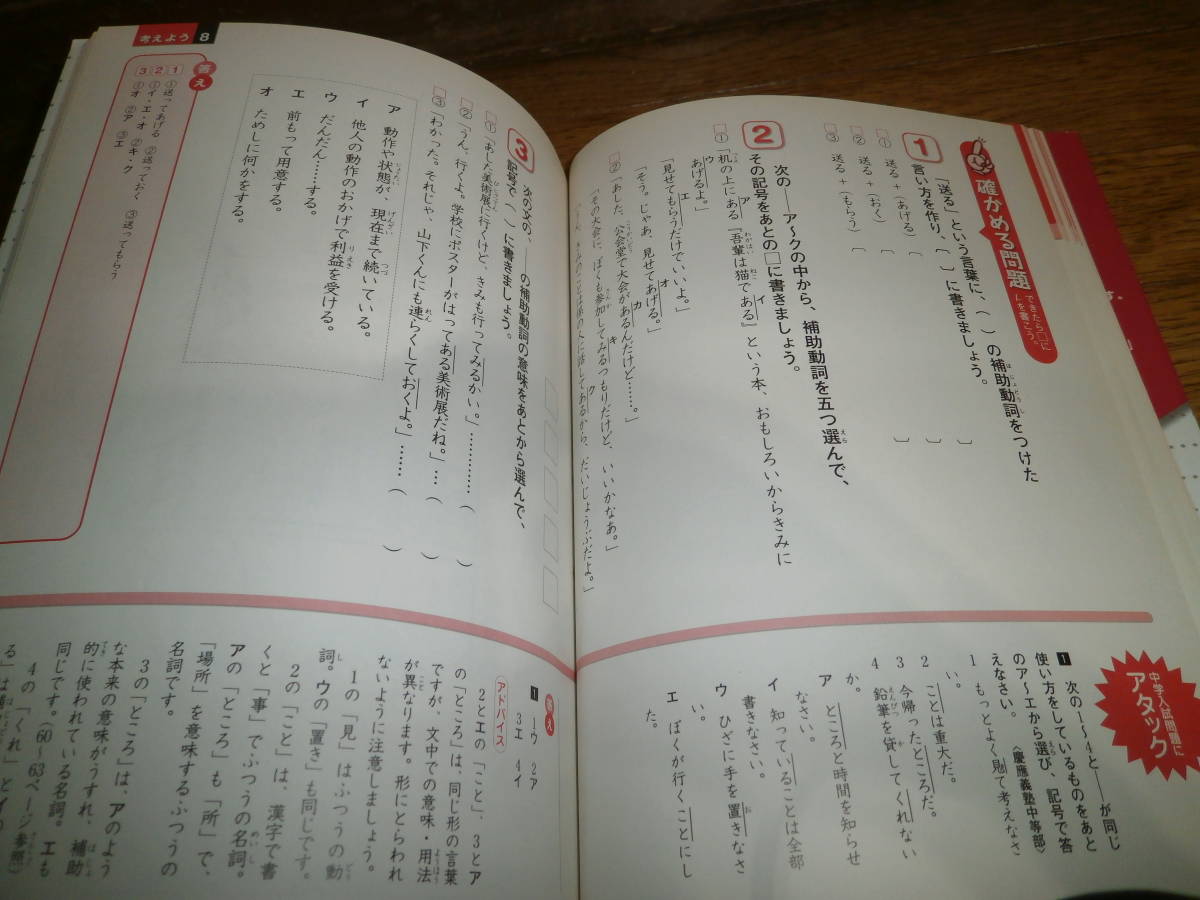 確かめる問題
できたら□に
レを書こう。
1
「送る」という言葉に、（ ）の補助動詞をつけた
言い方を作り、〔 〕に書きましょう。
□① 送る＋（あげる）〔 〕
□② 送る＋（おく）〔 〕
□③ 送る＋（もらう）〔 〕
2
次の――ア〜クの中から、補助動詞を五つ選んで、
その記号をあとの□に書きましょう。
□①「机の上にある『吾輩は猫である』という本、おもしろいからきみに
あげるよ。」
「見せてもらうだけでいいよ。」
「そう。じゃあ、見せてあげる。」
□②「あした、公会堂で大会があるんだけど……。」
「その大会に、ぼくも参加してみるつもりだけど、いいかなあ。」
から、だいじょうぶだよ。」
3
次の文の、――の補助動詞の意味をあとから選んで、
記号で（ ）に書きましょう。
□①「あした美術展に行くけど、きみも行ってみるかい。」…………（ ）
□②「うん、行くよ。学校にポスターがはってある美術展だね。」…（ ）
□③「わかった。それじゃ、山下くんにも連らくしておくよ。」……（ ）
ア 動作や状態が、現在まで続いている。
イ 他人の動作のおかげで利益を受ける。
ウ だんだん……する。
エ 前もって用意する。
オ ためしに何かをする。
答え
1 ①送ってあげる ②送っておく ③送ってもらう
2 ①イ・エ・オ ②キ・ク
3 ①オ ②ア ③エ
考えよう 8
中学入試問題に
アタック
1 次の1〜4と――が同じ
使い方をしているものをあと
のア〜エから選び、記号で答
えなさい。〈慶應義塾中等部〉
1 もっとよく見て考えなさ
い。
2 ことは重大だ。
3 今帰ったところだ。
4 鉛筆を貸してくれない
か。
ア ところと時間を知らせ
なさい。
イ 知っていることは全部
書きなさい。
ウ ひざに手を置きなさ
い。
エ ぼくが行くことにし
た。
答え
1 1ウ 2ア
3エ 4イ
アドバイス
2とエの「こと」、3とア
の「ところ」は、同じ形の言葉
ですが、文中での意味・用法
が異なります。形にとらわれ
ないように注意しましょう。
1の「見」はふつうの動
詞。ウの「置き」も同じです。
2の「こと」は、漢字で書
くと「事」でふつうの名詞。
アの「ところ」も「所」で、
「場所」を意味するふつうの
名詞です。
3の「ところ」は、アのよう
な本来の意味がうすれ、補助
的に使われている名詞。エも
同じです。(60〜63ページ参照)
4の「くれ」とイの